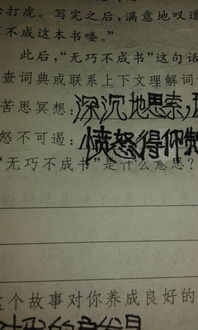 打虎。写完之后,满意地叹道
不成这本书喽。”
此后,“无巧不成书”这句话
查词典或联系上下文理解词
苦思冥想:深沉地思索,
怒不可遏:愤怒得抑制
“无巧不成书”是什么意思?
这个故事对你养成良好的